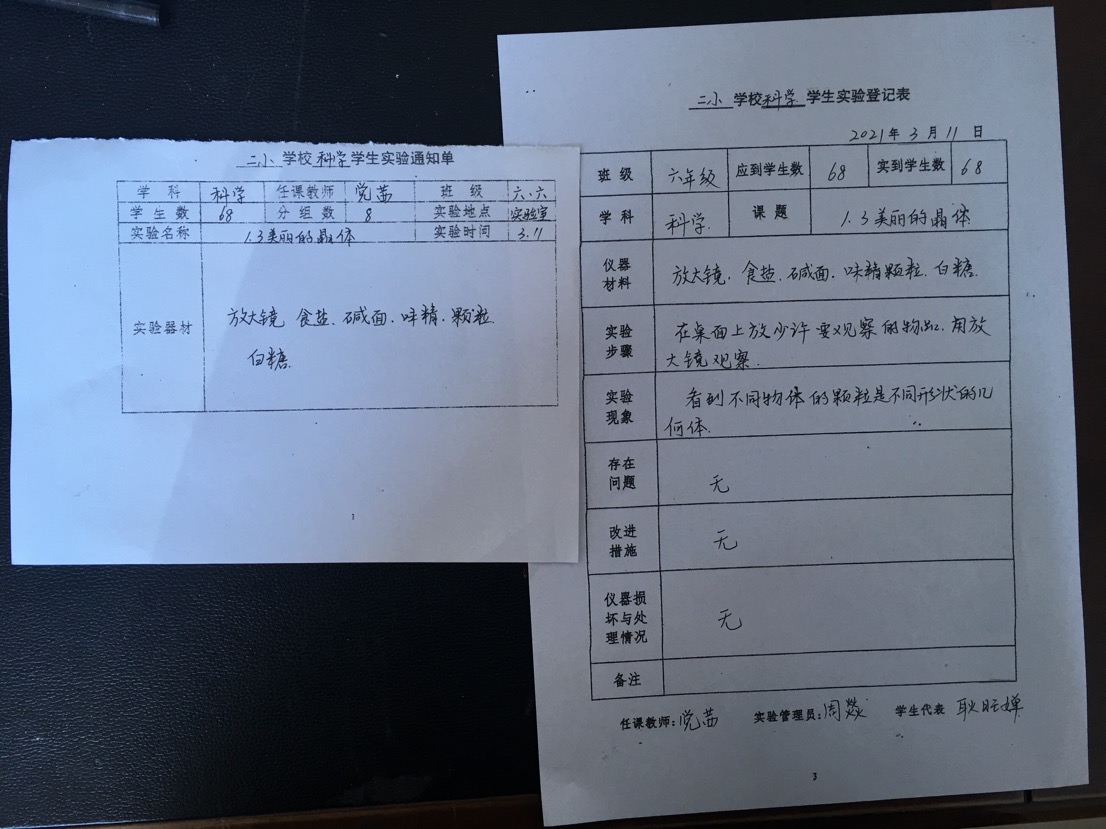 二小 学校 科学 学生实验通知单
学科 科学 任课教师 党茜 班级 六.六
学生数 68 分组数 8 实验地点 实验室
实验名称 1.3美丽的晶体 实验时间 3.11
实验器材 放大镜 食盐、碱面、味精、颗粒、
白糖.
1
二小 学校 科学 学生实验登记表
2021年 3月 11日
班级 六年级 应到学生数 68 实到学生数 68
学科 科学. 课题 1.3美丽的晶体
仪器
材料
放大镜、食盐、碱面、味精颗粒、白糖.
实验
步骤
在桌面上放少许要观察的物体,用放
大镜观察.
实验
现象
看到不同物体的颗粒是不同形状的几
何体.
存在
问题
无
改进
措施
无
仪器损
坏与处
理情况
无
备注
任课教师:党茜 实验管理员:周燚 学生代表 耿
3